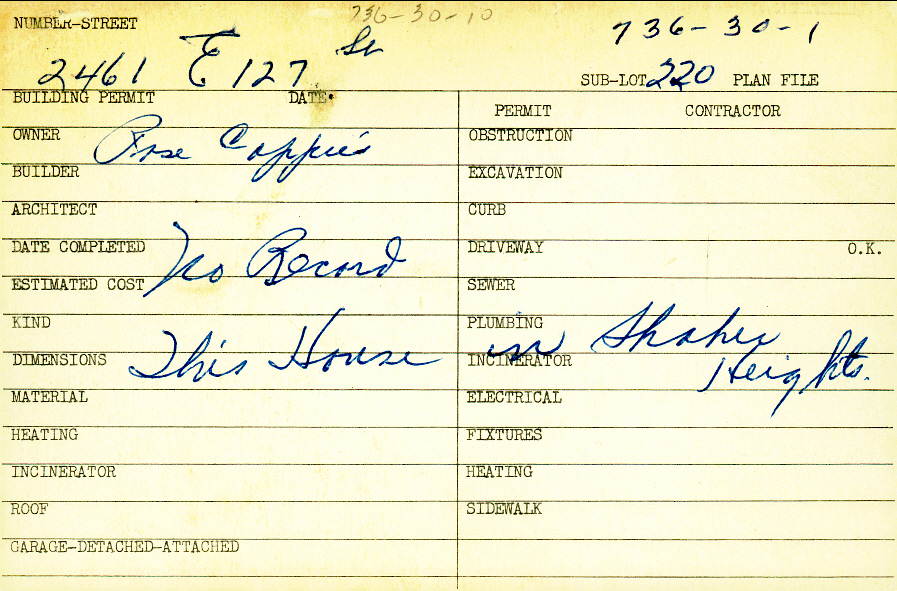 736-30-10
NUMBER-STREET 736-30-1
2461 E 127 St
SUB-LOT 220 PLAN FILE
BUILDING PERMIT DATE
PERMIT CONTRACTOR
OWNER Rose Coppins
OBSTRUCTION
BUILDER
EXCAVATION
ARCHITECT
CURB
DATE COMPLETED No Record
DRIVEWAY O.K.
ESTIMATED COST
SEWER
KIND
PLUMBING
This House in Shaker Heights.
DIMENSIONS
INCINERATOR
MATERIAL
ELECTRICAL
HEATING
FIXTURES
INCINERATOR
HEATING
ROOF
SIDEWALK
GARAGE-DETACHED-ATTACHED